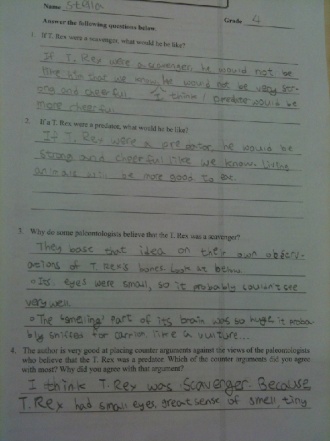 Name Stella
Grade 4
Answer the following questions below.
1. If T. Rex were a scavenger, what would he be like?
If T. Rex were a scavenger, he would not be
like his that we know, he would not be very str-
ong and cheerful. I think predator would be
more cheerful.
2. If a T. Rex were a predator, what would he be like?
If T. Rex were a predator, he would be
strong and cheerful like we know. Living
animals will be more good to eat.
3. Why do some paleontologists believe that the T. Rex was a scavenger?
They base that idea on their own observ-
ations of T. Rexs bones. Look at below.
o Its eyes were small, so it probably couldn't see
very well
o The smelling part of its brain was so huge it proba-
bly sniffed for carrion like a vulture...
4. The author is very good at placing counter arguments against the views of the paleontologists
who believe that the T. Rex was a predator. Which of the counter arguments did you agree
with most? Why did you agree with that argument?
I think T.Rex was Scavenger. Because
T.Rex had small eyes, great sense of smell tiny